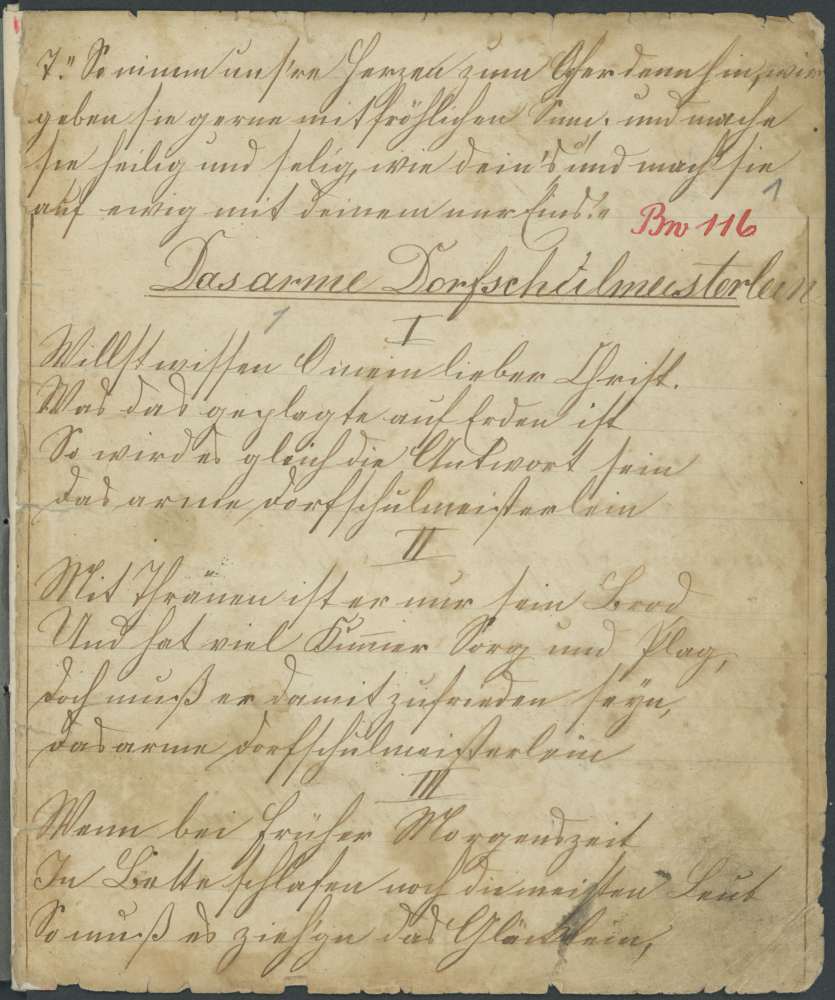 7." So nimm uns're Herzen zum Opfer denn hin, wir
geben sie gerne mit fröhlichen Sinn, und mache
sie heilig und selig, wie dein's und mach' sie
auf ewig mit deinem nur Eins."
1
Bw 116
Das arme Dorfschulmeisterlein
1
I
Willst wissen O mein lieber Christ.
Was das geplagte auf Erden ist
So wird es gleich die Antwort sein
das arme Dorfschulmeisterlein
II
Mit Thränen ist er nur sein Brod
Und hat viel Kum̄er Sorg und Plag,
doch muß er damit zufrieden seyn,
das arme Dorfschulmeisterlein
III
Wenn bei früher Morgenszeit
In Bette schlafen noch die meisten Leut
So muß es das Glöcklein,